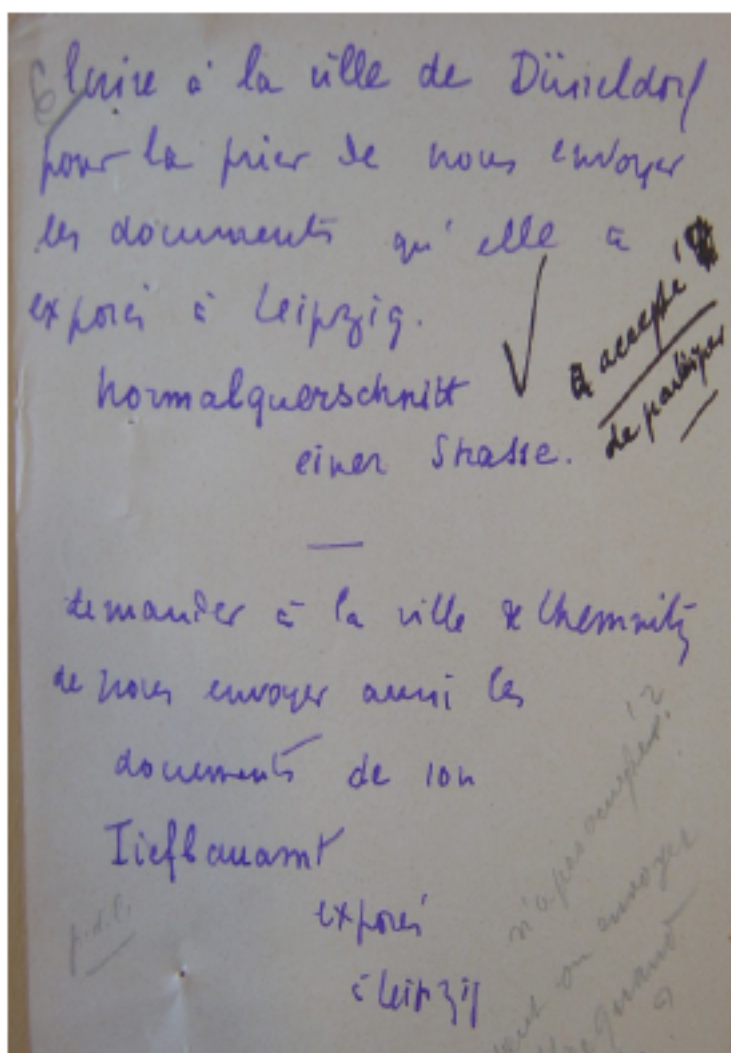 Ecrire à la ville de Düsseldorf
pour la prier de nous envoyer
les documents qu'elle a
exposés à Leipzig.
Normalquerschnitt
einer Strasse.
a accepté
de participer
—
demander à la ville de Chemnitz
de nous envoyer aussi les
documents de son
Tiefbauamt
exposés
à Leipzig
n'a pas accepté?
on envoyer
quand
?
p.d.l.